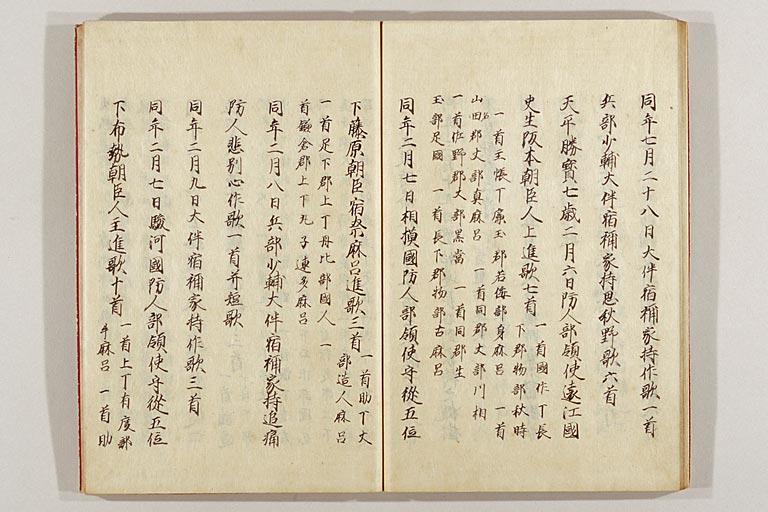 同年七月二十八日大伴宿祢家持作歌一首
兵部少輔大伴宿祢家持思秋野歌六首
天平勝寶七歳二月六日防人部領使遠江國
史生阪本朝臣人上進歌七首 一首國作丁長
下郡物部秋時
一首主帳丁麁玉郡若倭部身麻呂 一首
山名郡丈部真麻呂 一首同郡丈部川相
一首佐野郡丈部黒當 一首同郡生
玉部足國 一首長下郡物部古麻呂
同年二月七日相摸國防人部領使守從五位
下藤原朝臣宿奈麻呂進歌三首 一首助丁丈
部造人麻呂
一首足下郡上丁丹比部國人 一
首鎌倉郡上丁丸子連多麻呂
同年二月八日兵部少輔大伴宿祢家持追痛
防人悲別心作歌一首并短歌
同年二月九日大伴宿祢家持作歌三首
同年二月七日駿河國防人部領使守從五位
下布勢朝臣人主進歌十首 一首上丁有度部
牛麻呂 一首助